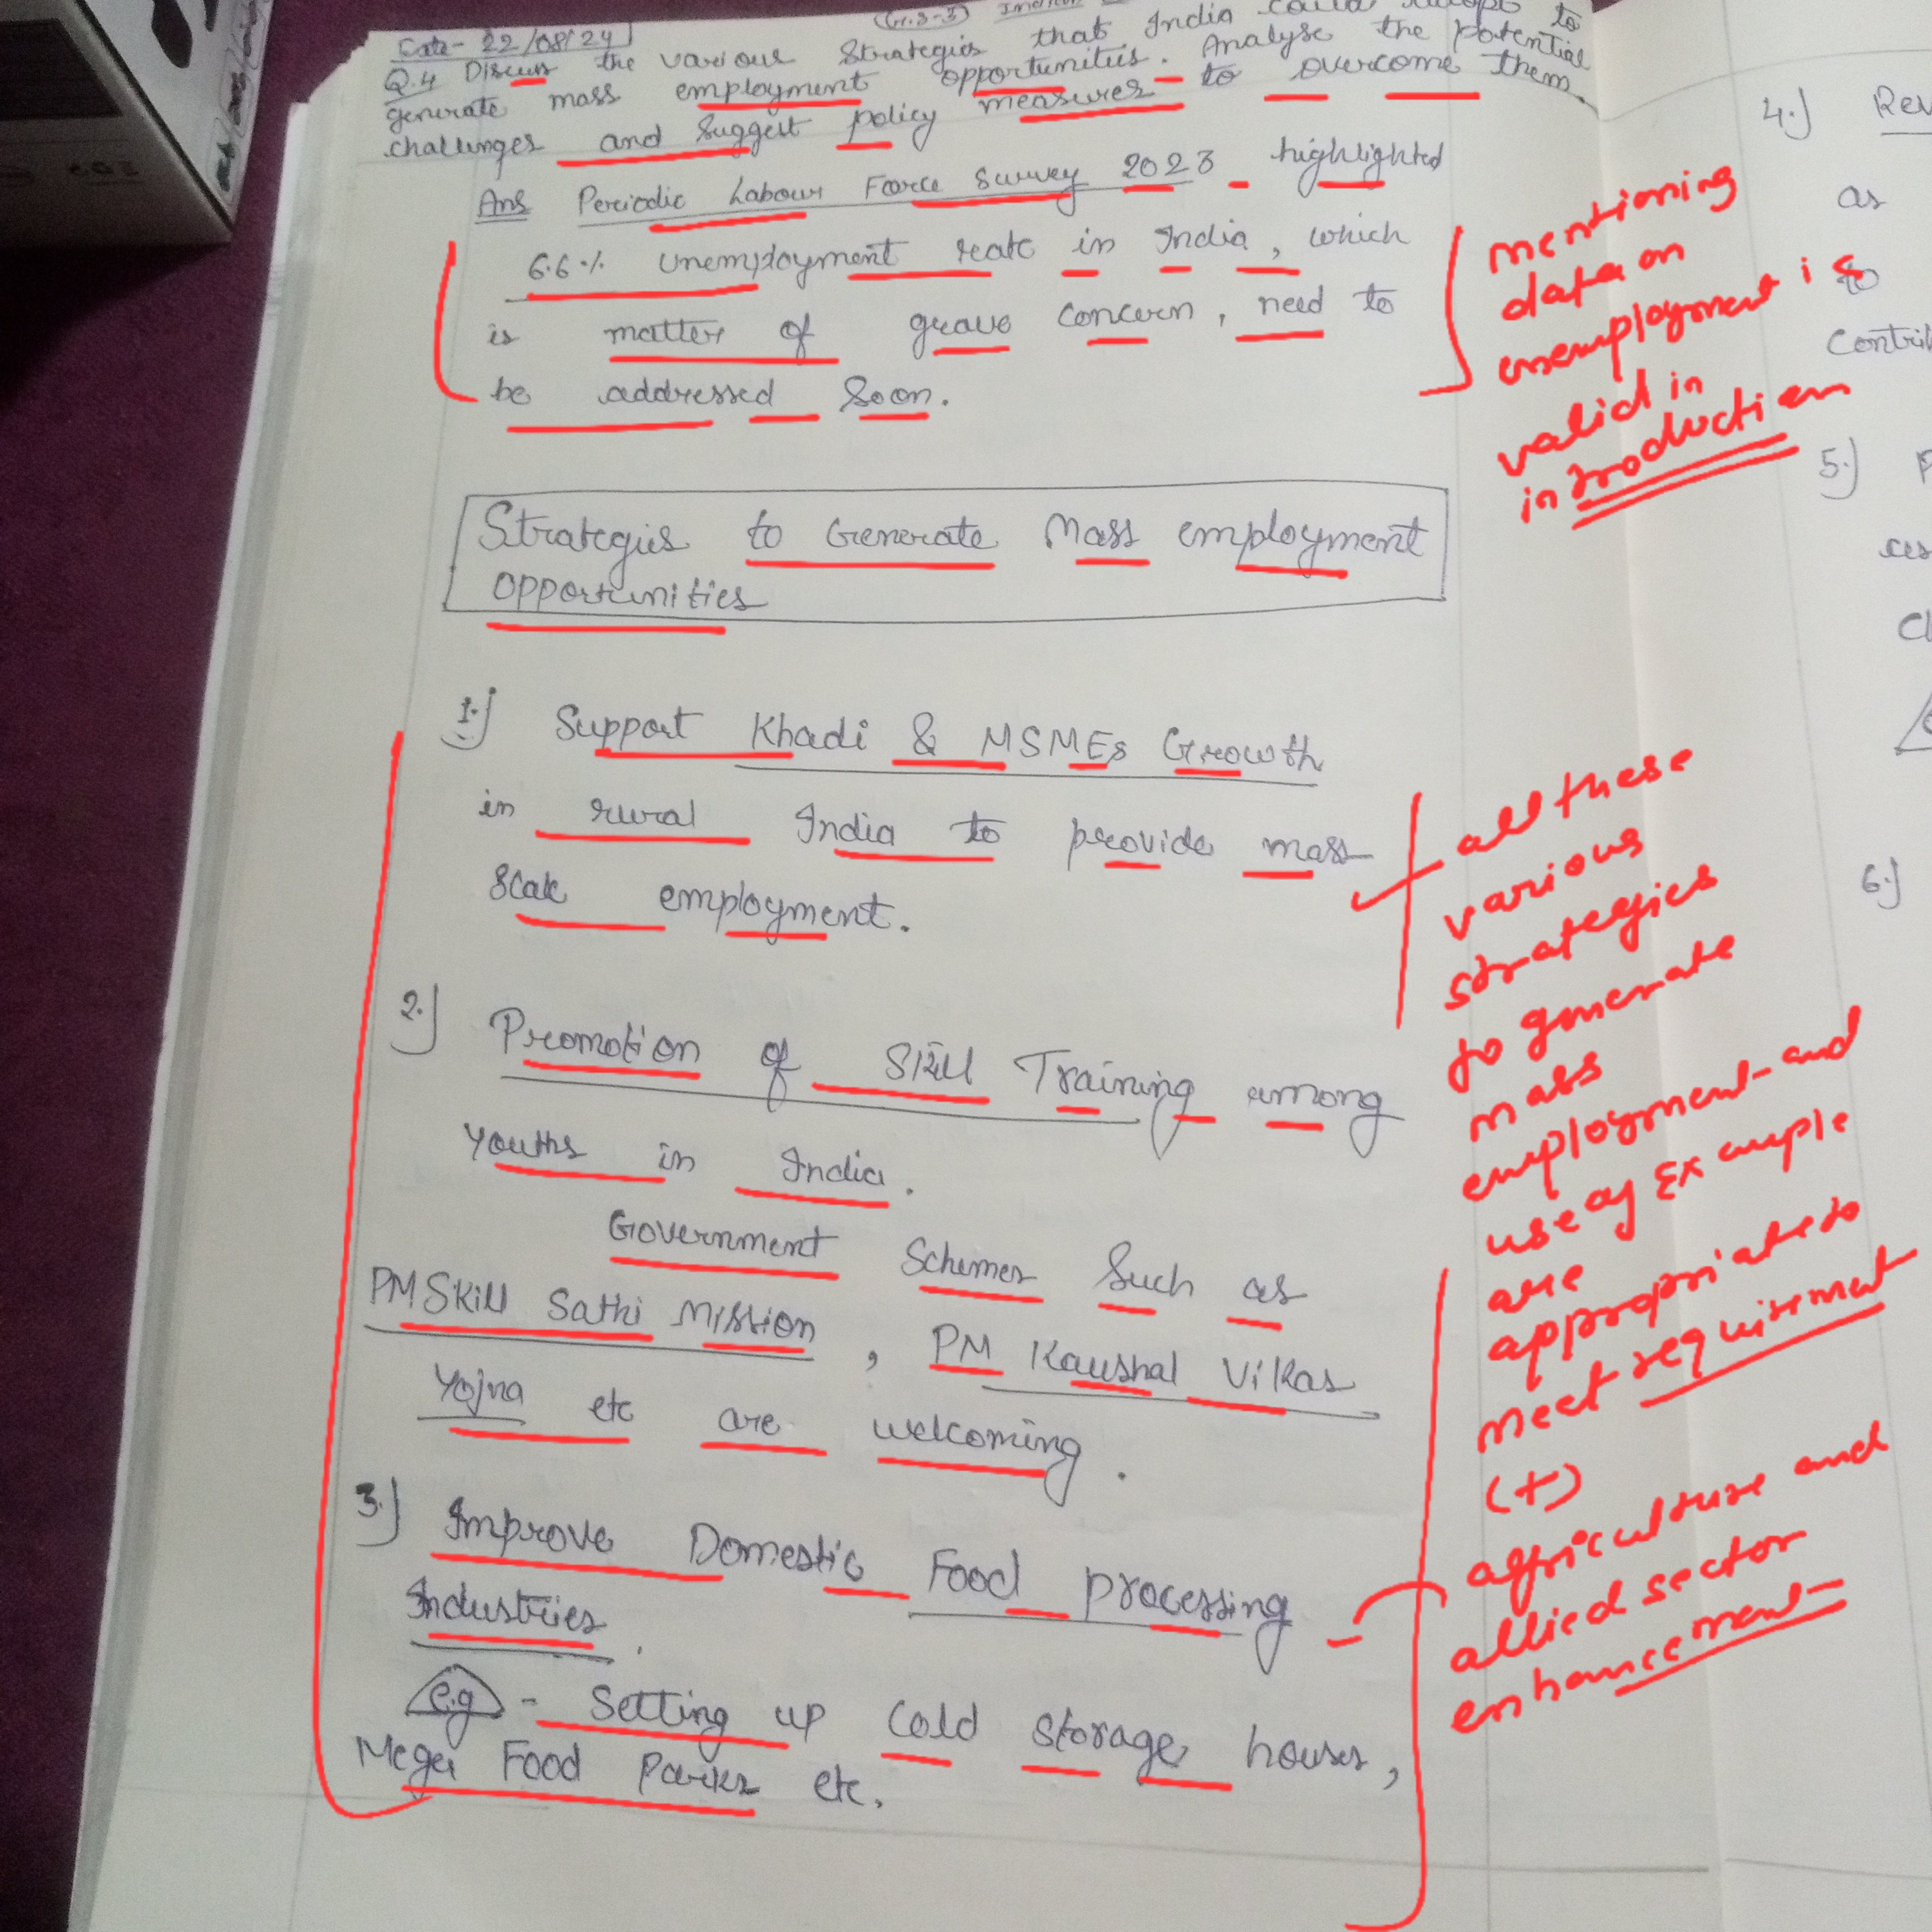 (G.S-3)
Date- 22/08/24
Q.4 Discuss the various Strategies that India could adopt to
generate mass employment opportunities. Analyse the potential
challenges and Suggest policy measures to overcome them.
Ans Periodic Labour Force Survey 2023 highlighted
6.6% unemployment rate in India, which
is matter of grave concern, need to
be addressed Soon.
mentioning
data on
unemployment is
valid in
introduction
Strategies to Generate Mass employment
opportunities
1.) Support Khadi & MSMEs Growth
in rural India to provide mass
Scale employment.
2.) Promotion of Skill Training among
Youths in India.
Government Schemes Such as
PM Skill Sathi Mission, PM Kaushal Vikas
Yojna etc are welcoming.
3.) Improve Domestic Food processing
Industries.
e.g - Setting up Cold Storage houses,
Mega Food Parks etc.
all these
various
strategies
to generate
mass
employment and
use of Example
are
appropriate to
meet requirement
(+)
agriculture and
allied sector
enhancement
4.)
as
to
5.)
6.)